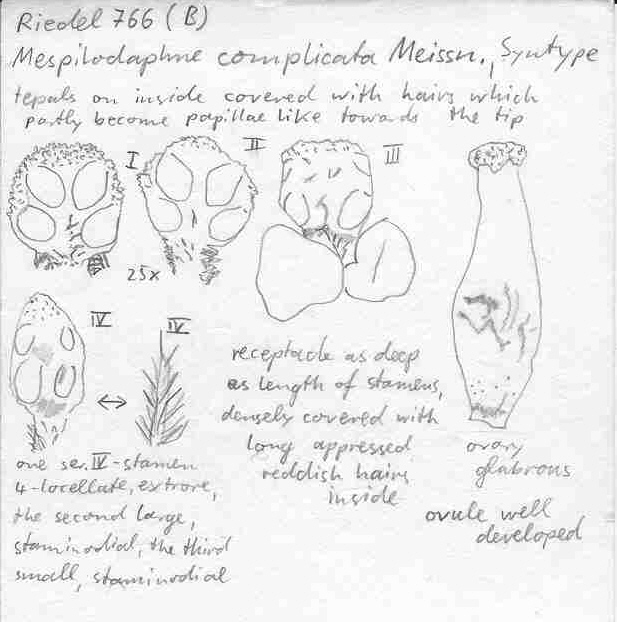 Riedel 766 (B)
Mespilodaphne complicata Meissn., Syntype
tepals on inside covered with hairs which
partly become papillae like towards the tip
I
II
III
25x
IV
IV
receptacle as deep
as length of stamens,
densely covered with
long appressed
reddish hairs
inside
one ser. IV-stamen
4-locellate, extrore,
the second large,
staminodial, the third
small, staminodial
ovary
glabrous
ovule well
developed